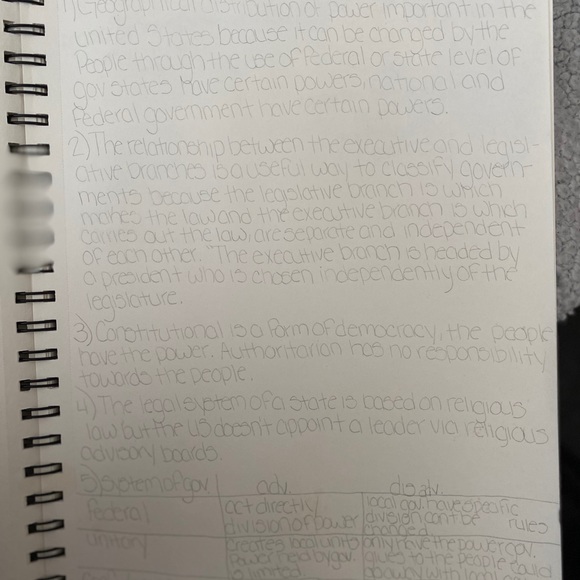 1) Geographical distribution of power important in the
united States because it can be changed by the
People through the use of federal or state level of
gov states have certain powers, national and
Federal government have certain powers.
2) The relationship between the executive and legisl-
ative branches is a useful way to classify govern-
ments because the legislative branch is which
makes the law and the executive branch is which
carries out the law, are separate and independent
of each other. "The executive branch is headed by
a president who is chosen independently of the
legislature.
3) Constitutional is a form of democracy, the people
have the power. Authoritarian has no responsibility
towards the people.
4) The legal system of a state is based on religious
law but the US doesn't appoint a leader via religious
advisory boards.
5) system of gov. adv. disadv.
Federal act directly local gov. have specific rules
division of power division can't be
changed
unitary creates local units only have the power gov.
power held by gov. gives to the people could
is limited